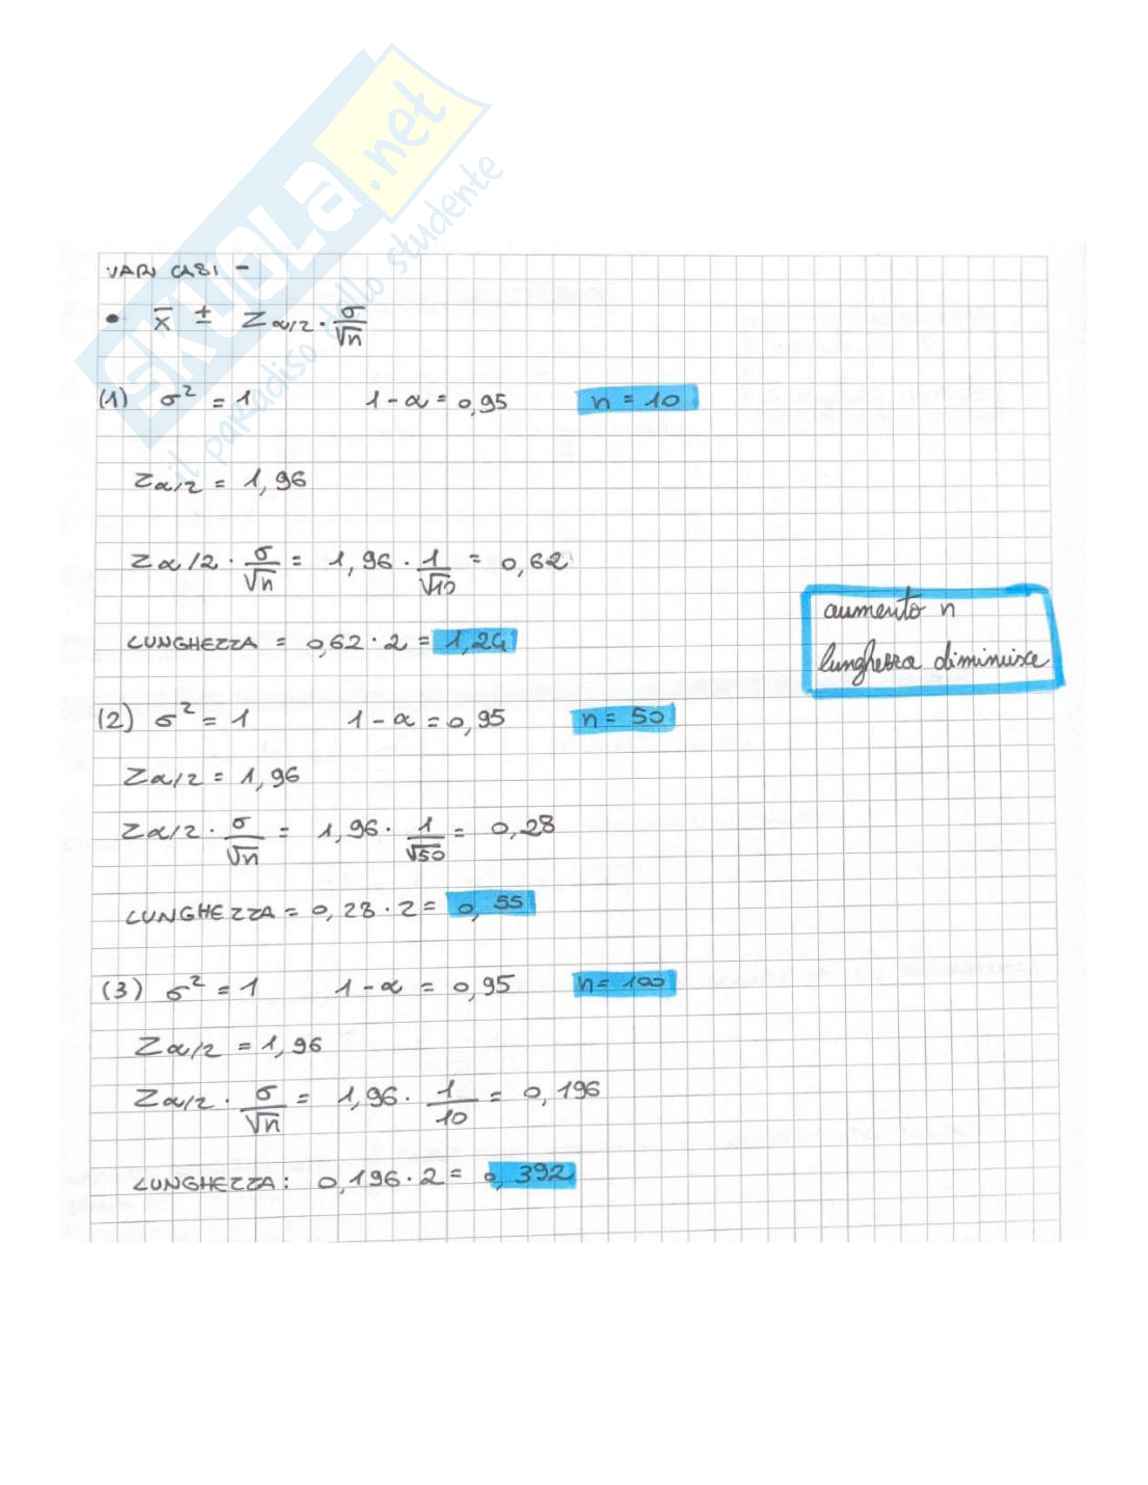 SKUOLA.net
il paradiso dello studente
VARI CASI -
• x̄ ± Zα/2 · σ/√n
(1) σ² = 1 1 - α = 0,95 n = 10
Zα/2 = 1,96
Zα/2 · σ/√n = 1,96 · 1/√10 = 0,62
LUNGHEZZA = 0,62 · 2 = 1,24
aumento n
lunghezza diminuisce
(2) σ² = 1 1 - α = 0,95 n = 50
Zα/2 = 1,96
Zα/2 · σ/√n = 1,96 · 1/√50 = 0,28
LUNGHEZZA = 0,28 · 2 = 0,55
(3) σ² = 1 1 - α = 0,95 n = 100
Zα/2 = 1,96
Zα/2 · σ/√n = 1,96 · 1/10 = 0,196
LUNGHEZZA : 0,196 · 2 = 0,392